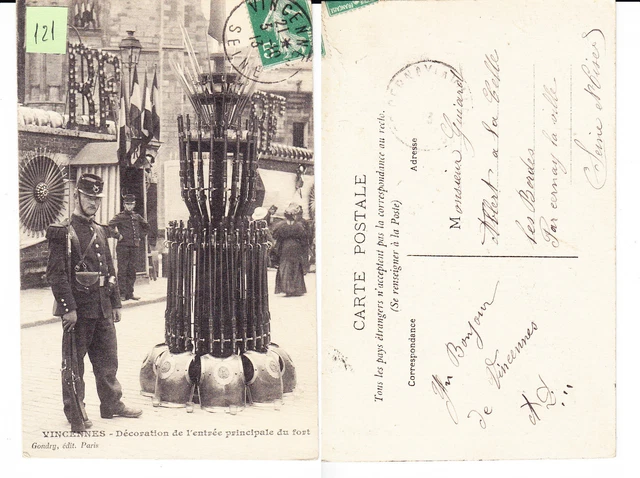 121
VINCENNES
SEINE
VINCENNES - Décoration de l'entrée principale du fort
Gondry, édit. Paris
CARTE POSTALE
Tous les pays étrangers n'acceptent pas la correspondance au recto.
(Se renseigner à la Poste)
Correspondance
Adresse
Un Bonjour
de Vincennes
Monsieur Guiard
Albert a la Celle
les Bordes
Par cernay la ville
Seine et Oise